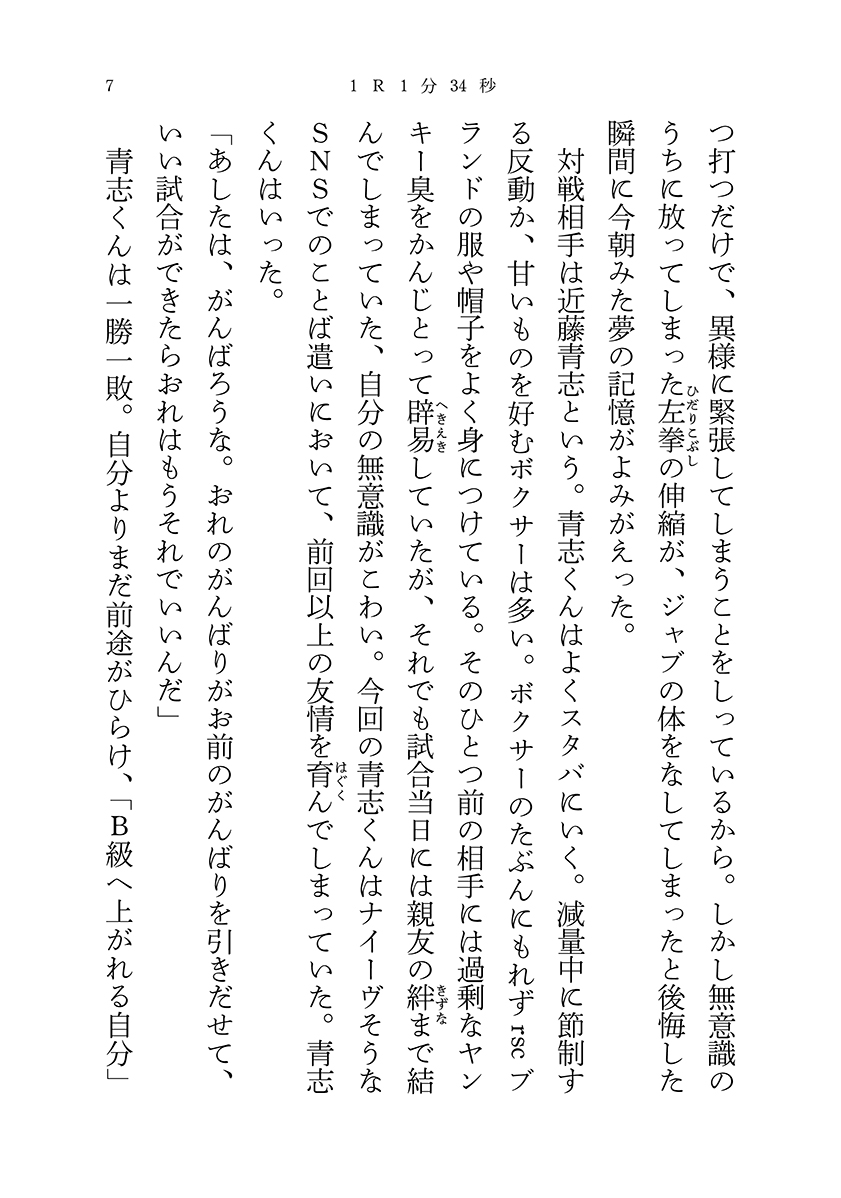 7
1R1分34秒
つ打つだけで、異様に緊張してしまうことをしっているから。しかし無意識の
うちに放ってしまった左拳の伸縮が、ジャブの体をなしてしまったと後悔した
ひだりこぶし
瞬間に今朝みた夢の記憶がよみがえった。
対戦相手は近藤青志という。青志くんはよくスタバにいく。減量中に節制す
る反動か、甘いものを好むボクサーは多い。ボクサーのたぶんにもれずrscブ
ランドの服や帽子をよく身につけている。そのひとつ前の相手には過剰なヤン
キー臭をかんじとって辟易していたが、それでも試合当日には親友の絆まで結
へきえき
きずな
んでしまっていた、自分の無意識がこわい。今回の青志くんはナイーヴそうな
SNSでのことば遣いにおいて、前回以上の友情を育んでしまっていた。青志
はぐく
くんはいった。
「あしたは、がんばろうな。おれのがんばりがお前のがんばりを引きだせて、
いい試合ができたらおれはもうそれでいいんだ」
青志くんは一勝一敗。自分よりまだ前途がひらけ、「B級へ上がれる自分」